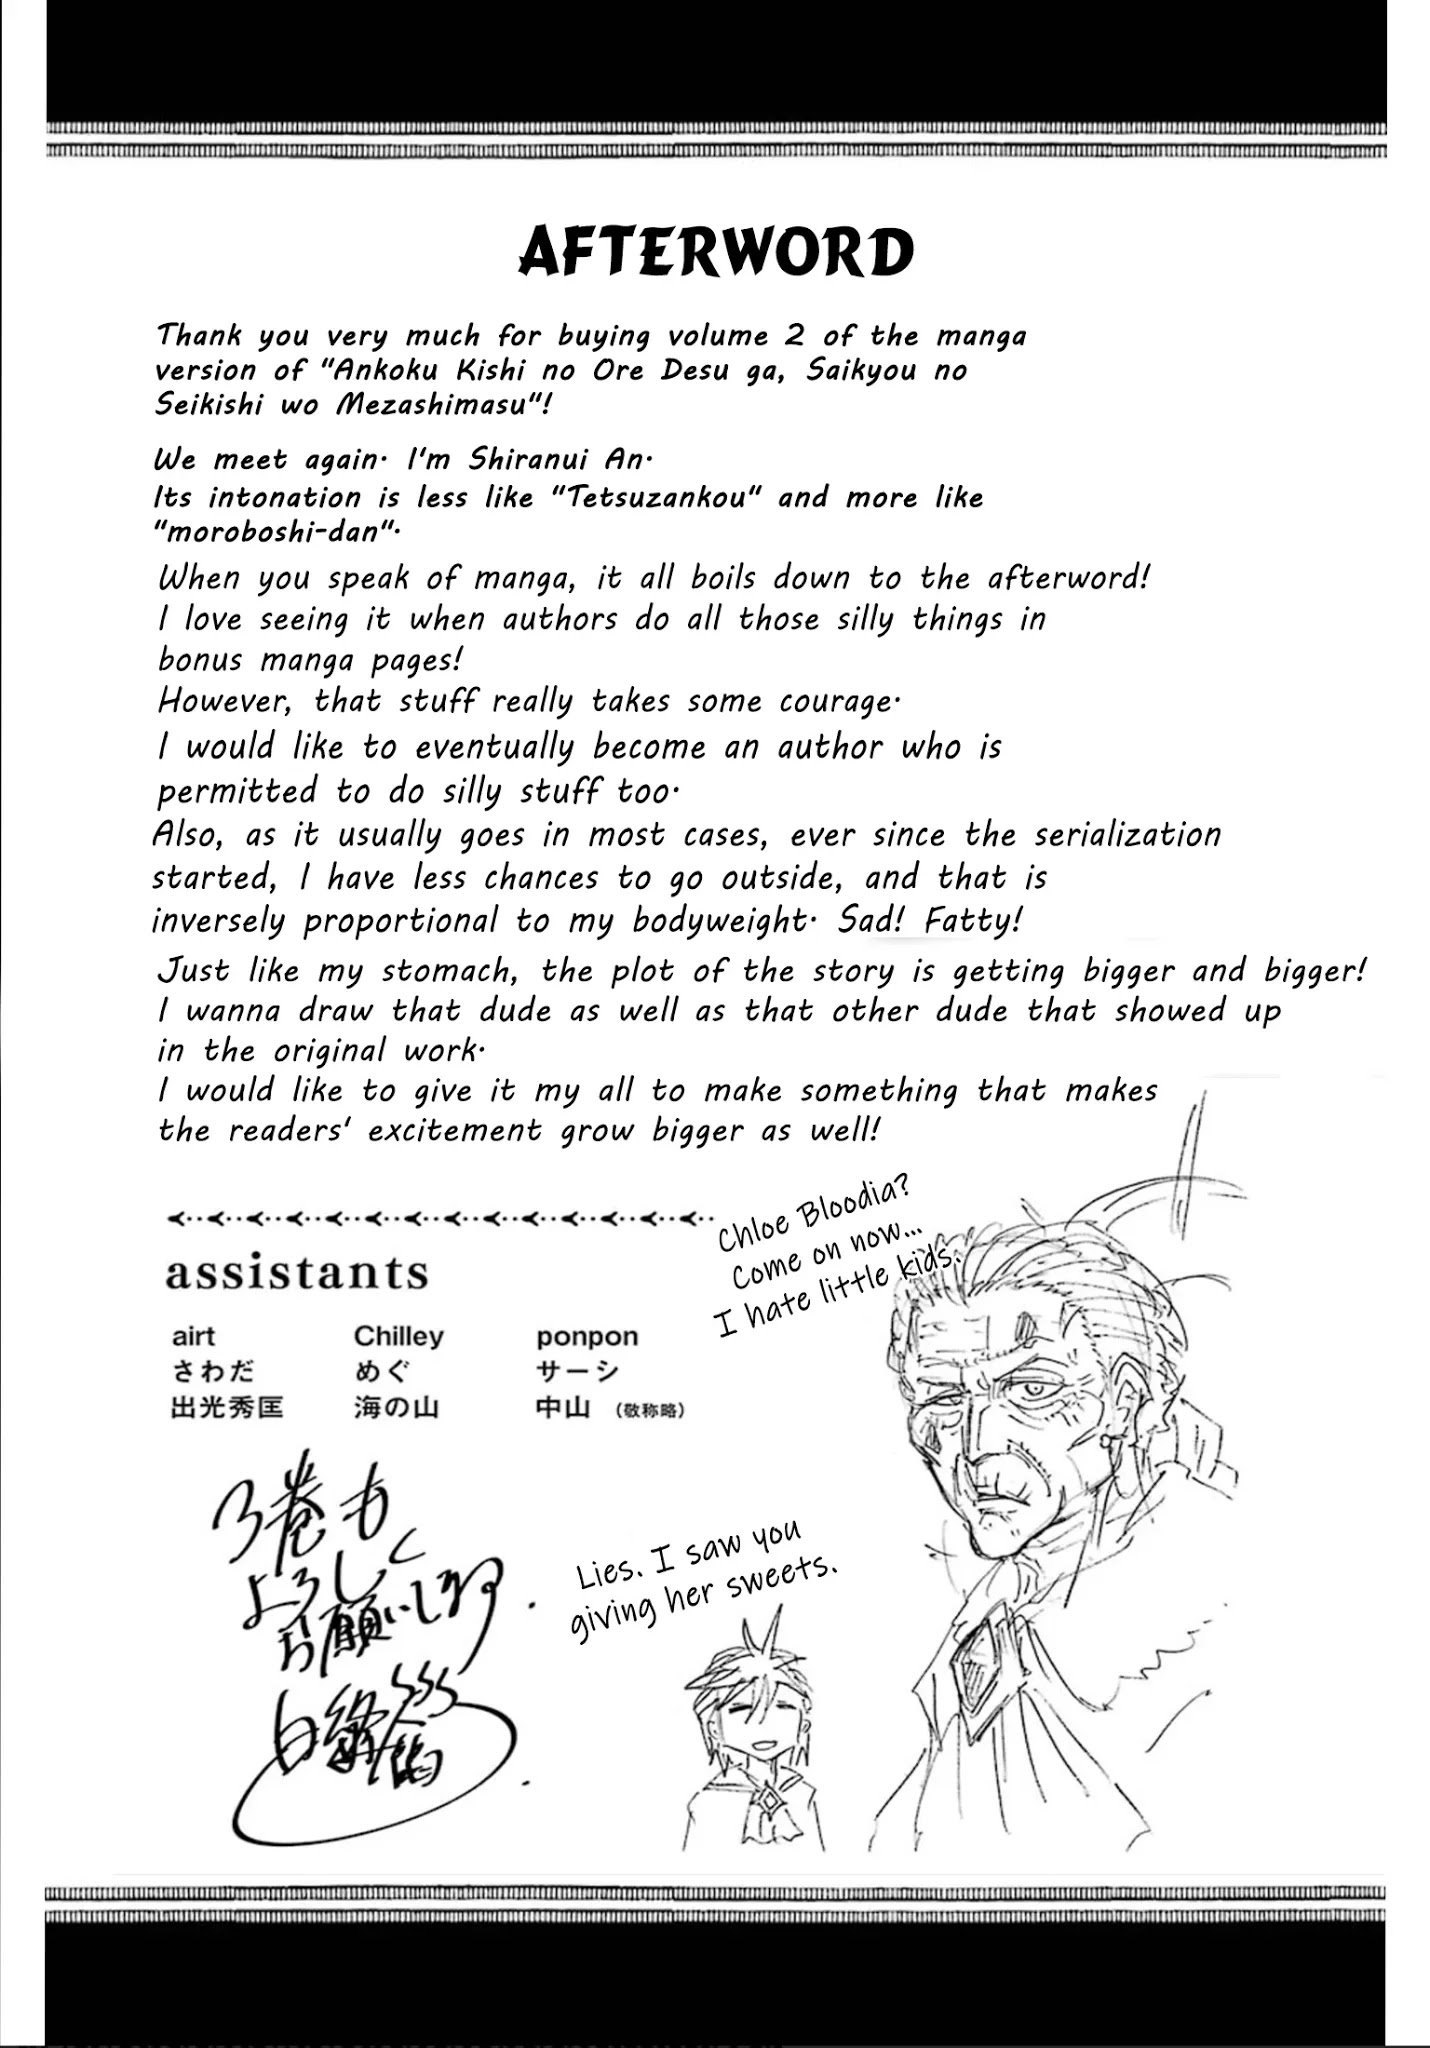 AFTERWORD
Thank you very much for buying volume 2 of the manga
version of "Ankoku Kishi no Ore Desu ga, Saikyou no
Seikishi wo Mezashimasu"!
We meet again. I'm Shiranui An.
Its intonation is less like "Tetsuzankou" and more like
"moroboshi-dan".
When you speak of manga, it all boils down to the afterword!
I love seeing it when authors do all those silly things in
bonus manga pages!
However, that stuff really takes some courage.
I would like to eventually become an author who is
permitted to do silly stuff too.
Also, as it usually goes in most cases, ever since the serialization
started, I have less chances to go outside, and that is
inversely proportional to my bodyweight. Sad! Fatty!
Just like my stomach, the plot of the story is getting bigger and bigger!
I wanna draw that dude as well as that other dude that showed up
in the original work.
I would like to give it my all to make something that makes
the readers' excitement grow bigger as well!
Chloe Bloodia?
Come on now...
I hate little kids.
assistants
airt Chilley ponpon
さわだ めぐ サーシ
出光秀匡 海の山 中山 (敬称略)
3巻も
よろしく
お願いします
Lies. I saw you
giving her sweets.